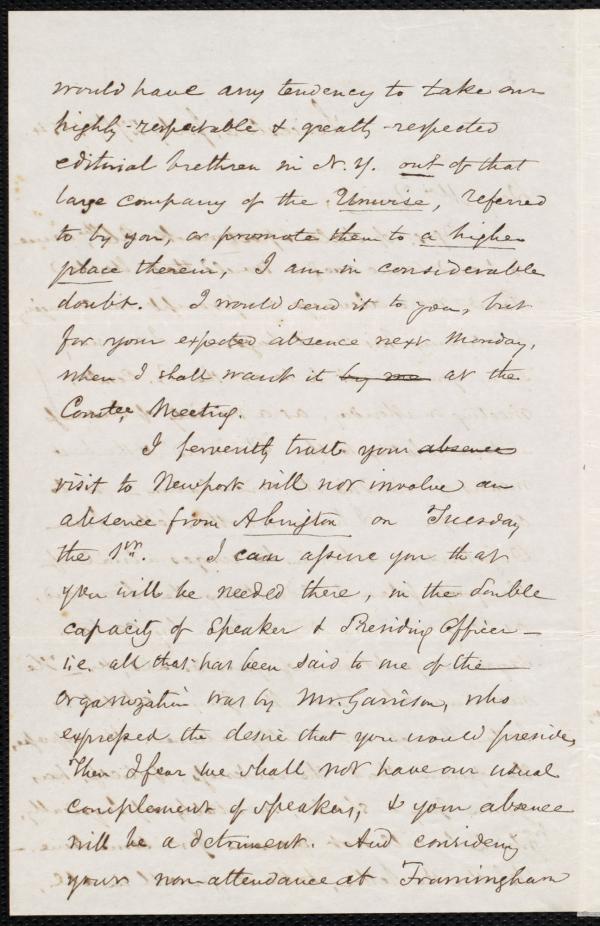 would have any tendency to take our
highly-respectable & greatly-respected
editorial brethren in N.Y. out of that
large company of the Unwise, referred
to by you, or promote them to a higher
place therein, I am in considerable
doubt. I would send it to you, but
for your expected absence next Monday,
when I shall want it by me at the
Comtee. Meeting.
I fervently trust your absence
visit to Newport will not involve an
absence from Abington on Tuesday
the 1st. I can assure you that
you will be needed there, in the double
capacity of Speaker & Presiding Officer –
i.e. all that has been said to me of the
organization was by Mr. Garrison, who
expressed the desire that you would preside,
Then I fear we shall not have our usual
complement of speakers, & your absence
will be a detriment. And considering
your non-attendance at Framingham